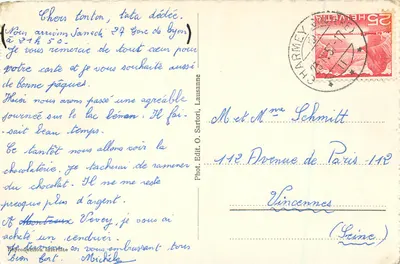 Chers tonton, tata dédée.
(Nous arrivons Samedi 27 Gare de Lyon
à 21 h 50.)
Je vous remercie de tout cœur pour
votre carte et je vous souhaite aussi
de bonne pâques.
Hier nous avons passé une agréable
journée sur le lac Léman. Il fai-
sait beau temps.
Ce tantôt nous allons voir la
chocolaterie, je tacherai de ramener
du chocolat. Il ne me reste
presque plus d'argent.
A Montreux Vevey, je vous ai
acheté un cendrier.
Je termine en vous embrassant tous
bien fort. Michèle
Phot. Edit. O. Sartori, Lausanne
HELVETIA
25
CHARMEY
M et Mme Schmitt
112 Avenue de Paris 112
Vincennes
(Seine)